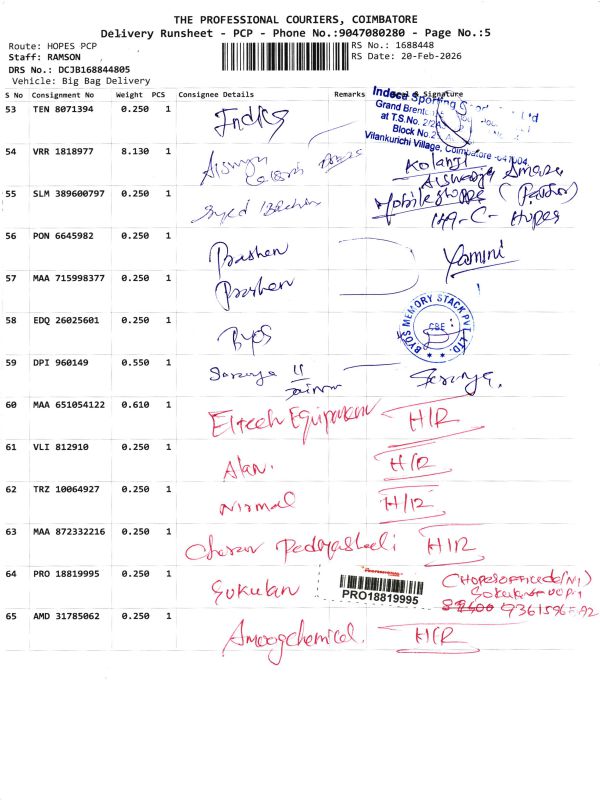 THE PROFESSIONAL COURIERS, COIMBATORE
Delivery Runsheet - PCP - Phone No.:9047080280 - Page No.:5
Route: HOPES PCP
RS No.: 1688448
Staff: RAMSON
RS Date: 20-Feb-2026
DRS No.: DCJB168844805
Vehicle: Big Bag Delivery
S No Consignment No Weight PCS Consignee Details Remarks & Signature
53 TEN 8071394 0.250 1
Grand
at T.S.No.
Block No.
Vilankurichi Village, Coimbatore
54 VRR 1818977 8.130 1
55 SLM 389600797 0.250 1 Syed
149-C- Hopes
56 PON 6645982 0.250 1 Yamini
57 MAA 715998377 0.250 1
58 EDQ 26025601 0.250 1 Byos
BYOS MEMORY STACK PVT. LTD.
CBE
59 DPI 960149 0.550 1 Saranya
Saranya.
60 MAA 651054122 0.610 1 Eltech Equipment H/R
61 VLI 812910 0.250 1 Alan. H/R
62 TRZ 10064927 0.250 1 Nirmal H/R
63 MAA 872332216 0.250 1 H/R
64 PRO 18819995 0.250 1 Gokulan
PRO18819995
65 AMD 31785062 0.250 1 Amoogchemical. H/R